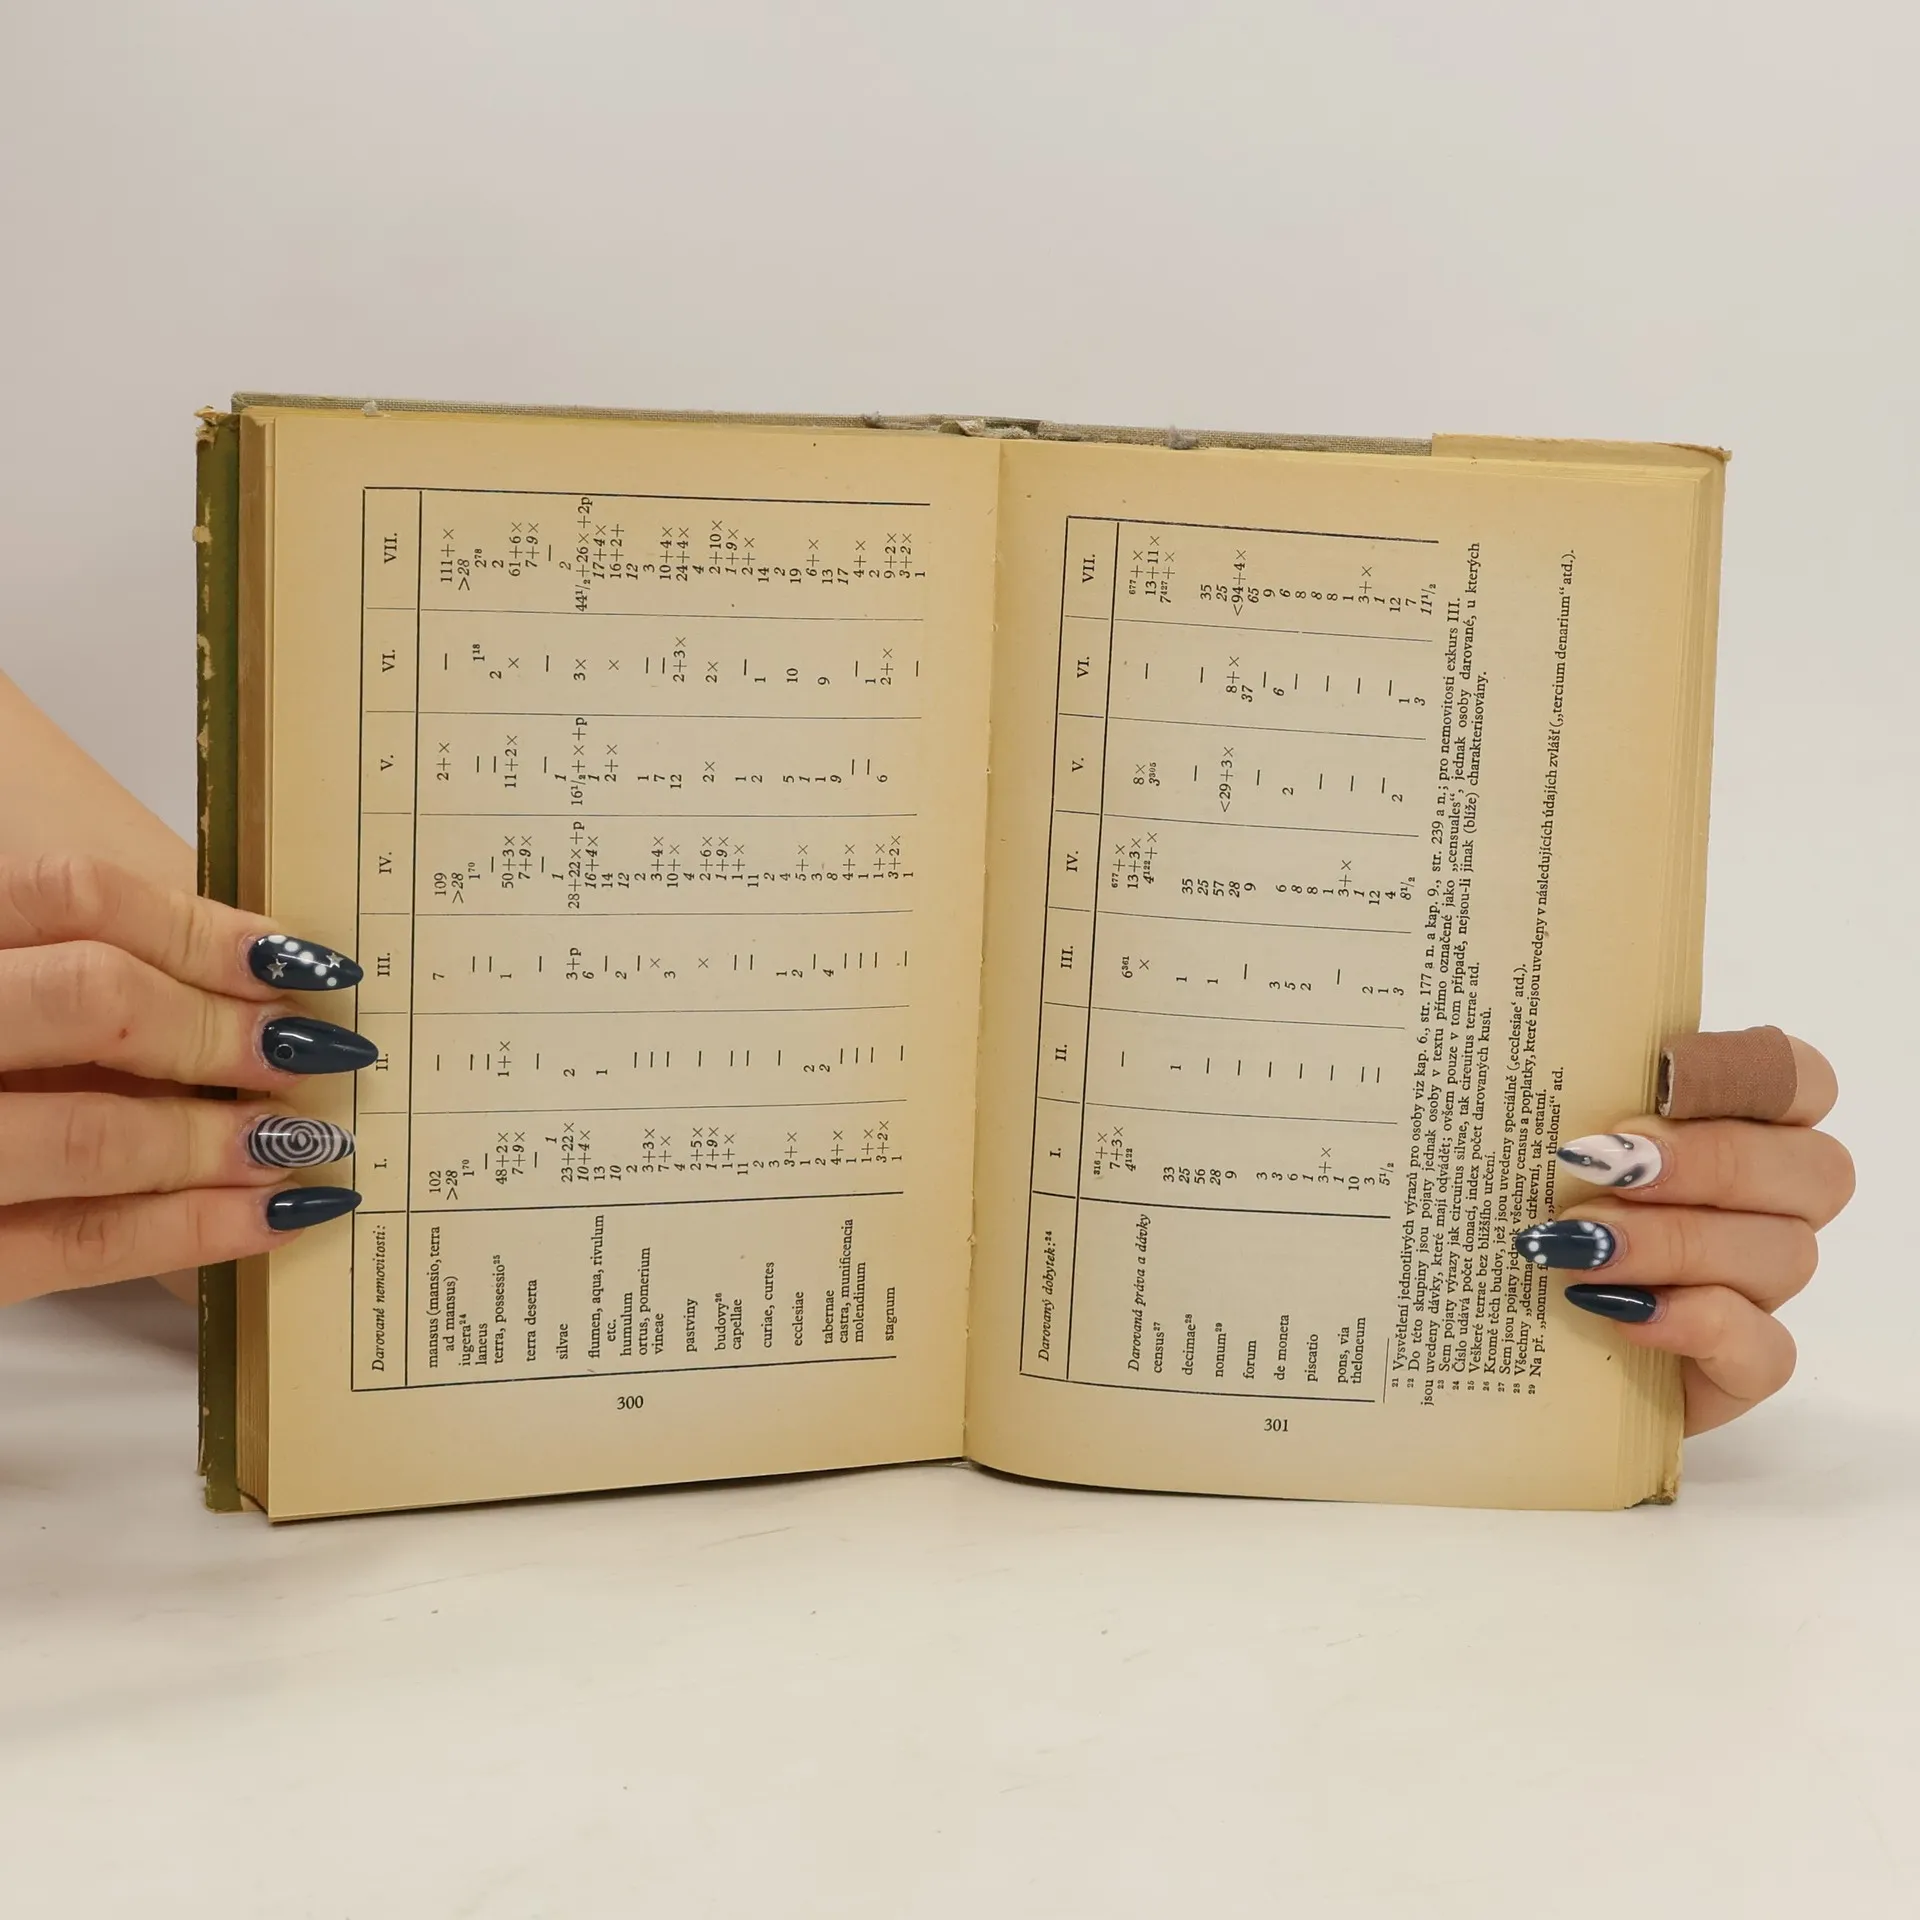 Darované nemovitosti: I. II. III. IV. V. VI. VII.
mansus (mansio, terra 102 — 7 109 2+× — 111+×
ad mansus) >28 >28 >28
iugera²⁴ 1⁷⁰ — — 1⁷⁰ — 1¹⁸ 2⁷⁸
laneus — — — — — 2 2
terra, possessio²⁵ 48+2× 1+× 1 50+3× 11+2× × 61+6×
7+9× 7+9× 7+9×
terra deserta — — — — — — —
1 1 1 2
silvae 23+22× 2 3+p 28+22×+p 16¹/₂+×+p 3× 44¹/₂+26×+2p
10+4× 6 16+4× 1 17+4×
flumen, aqua, rivulum 13 1 — 14 2+× × 16+2+
etc. 10 2 12 12
humulum 2 — — 2 1 — 3
ortus, pomerium 3+3× — × 3+4× 7 — 10+4×
vineae 7+× — 3 10+× 12 2+3× 24+4×
4 4 4
pastviny 2+5× — × 2+6× 2× 2× 2+10×
1+9× 1+9× 1+9×
budovy²⁶ 1+× — — 1+× 1 — 2+×
capellae 11 — — 11 2 1 14
2 2 2
curiae, curtes 3 — 1 4 5 10 19
ecclesiae 3+× 2 2 5+× 1 6+×
1 — 3 1 9 13
tabernae 2 2 4 8 9 17
castra, munificencia 4+× — — 4+× — — 4+×
molendinum 1 — — 1 — 1 2
1+× — — 1+× 6 2+× 9+2×
3+2× 3+2× 3+2×
stagnum 1 — — 1 — 1
300
Darovaný dobytek:²⁴ I. II. III. IV. V. VI. VII.
³¹⁶+× ⁶⁷⁷+× ⁶⁷⁷+×
7+3× — 6³⁶¹ 13+3× 8× — 13+11×
4¹²² × 4¹²²+× 3³⁰⁵ 7⁴²⁷+×
Darovaná práva a dávky
census²⁷ 33 1 1 35 — — 35
25 25 25
decimae²⁸ 56 — 1 57 <29+3× 8+× <94+4×
28 28 37 65
nonum²⁹ 9 — — 9 — — 9
forum 3 — 3 6 6
3 5 8 2 6 8
de moneta 6 — 2 8 — — 8
1 1 8
piscatio 3+× — — 3+× — — 1
1 1 3+×
pons, via 10 — 2 12 — — 1
theloneum 3 — 1 4 2 1 12
7
5¹/₂ 3 8¹/₂ 3 11¹/₂
²¹ Vysvětlení jednotlivých výrazů pro osoby viz kap. 6., str. 177 a n. a kap. 9., str. 239 a n.; pro nemovitosti exkurs III.
²² Do této skupiny jsou pojaty jednak osoby v textu přímo označené jako „censuales“, jednak osoby darované, u kterých
jsou uvedeny dávky, které mají odvádět; ovšem pouze v tom případě, nejsou-li jinak (blíže) charakterisovány.
²³ Sem pojaty výrazy jak circuitus silvae, tak circuitus terrae atd.
²⁴ Číslo udává počet donací, index počet darovaných kusů.
²⁵ Veškeré terrae bez bližšího určení.
²⁶ Kromě těch budov, jež jsou uvedeny speciálně („ecclesiae‘ atd.).
²⁷ Sem jsou pojaty jednak všechny census a poplatky, které nejsou uvedeny v následujících údajích zvlášť („tercium denarium“ atd.).
²⁸ Všechny „decimae církevní, tak ostatní.
²⁹ Na př. „nonum „nonum thelonei“ atd.
301